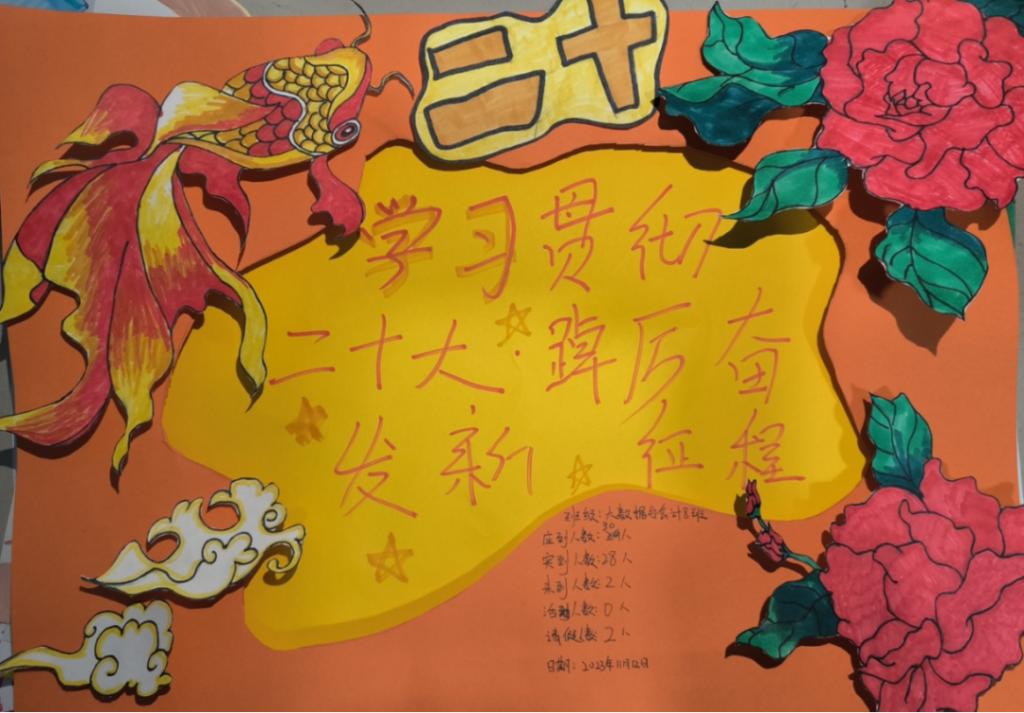 二十
学习贯彻
二十大·踔厉奋
发新征程
班级:大数据与会计8班
应到人数:30人
实到人数:28人
未到人数:2人
迟到人数:0人
请假人数:2人
日期:2023年11月12日